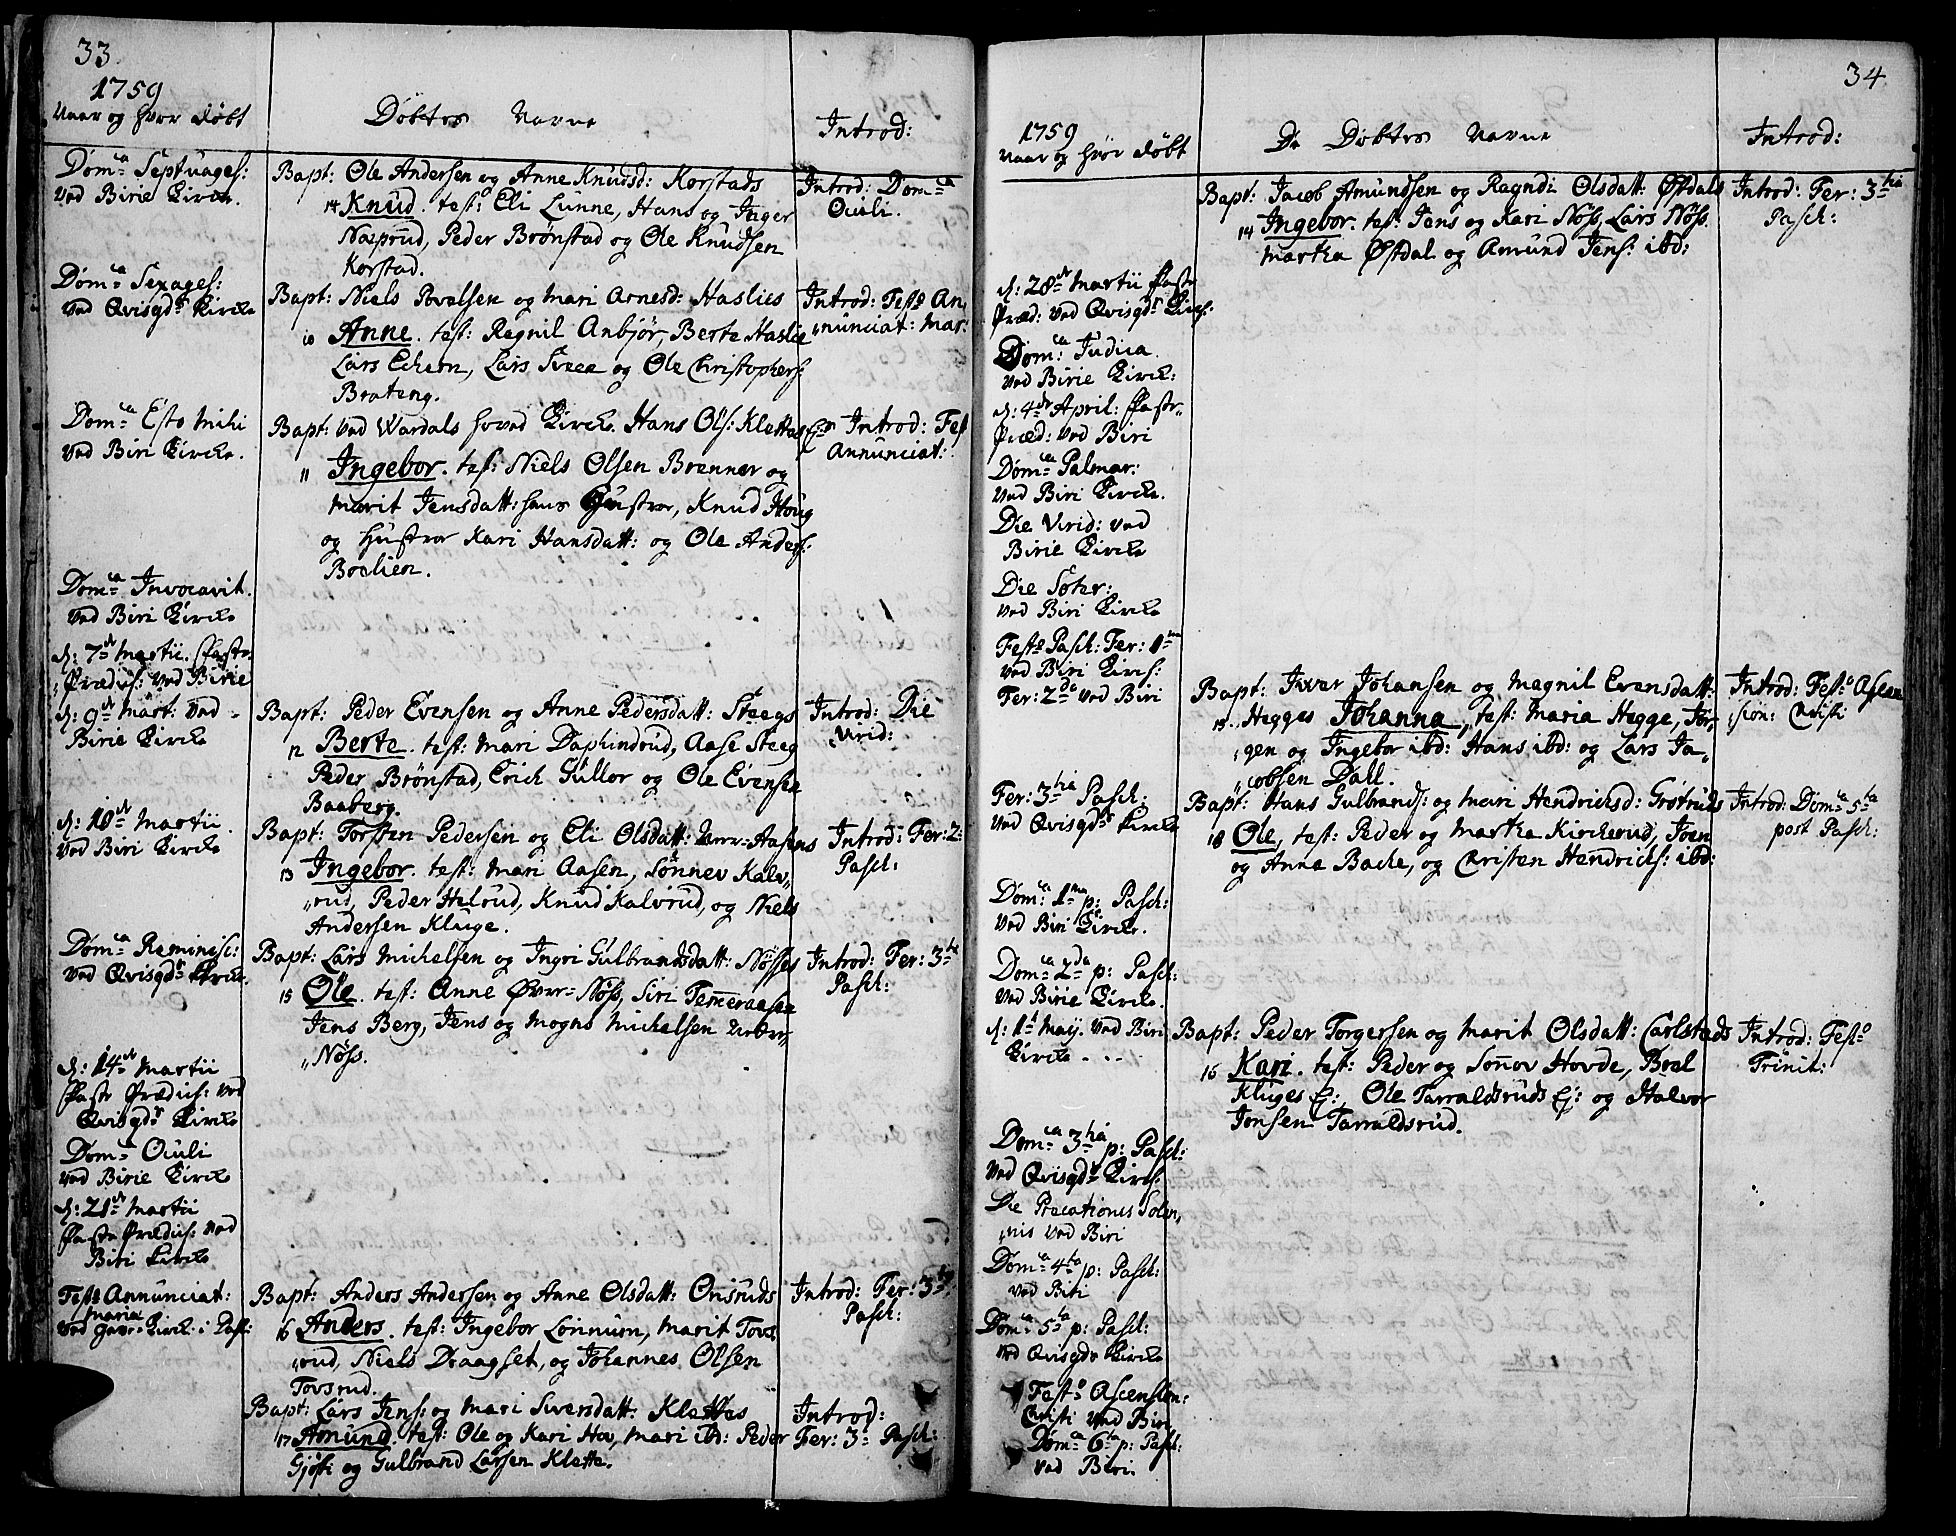 33.
1759
Naar og hvor døbt
Døbtes Navne
Introd:
Dom^ca Septuages:
ved Birie Kirche.
Bapt: Ole Andersen og Anne Knudsd: Korstads
14 Knud. test: Eli Lunne, Hans og Inger
Næprud, Peder Brønstad og Ole Knudsen
Korstad.
Introd: Dom^ca
Oculi.
Dom^ca Sexages:
ved Qvisgd^s Kirche
Bapt: Niels Povelsen og Mari Arnesd: Haslies
10 Anne. test: Ragnil Anbjør, Berte Haslie
Lars Echern, Lars Svee og Ole Christophers:
Brateng.
Introd: Festo An,
,nunciat: Mar:
Dom^ca Esto Mihi
ved Biri Kirche.
Bapt: ved Wardals hoved Kirche. Hans Ols: Klettes
11 Ingebor. test: Niels Olsen Brenner og
Marit Jensdatt: hans Hustroe, Knud Houg
og Hustroe Kari Hansdatt: og Ole Anders:
Boelien.
Ej: Introd: Fest
Annunciat:
Dom^ca Invocavit.
ved Biri Kirche
d: 7^de Martii. Faste
,Prædics: ved Birie
d: 9^de Mart: ved
Birie Kirche
Bapt: Peder Evensen og Anne Pedersdatt: Steegs
12 Berte. test: Mari Daphindrud, Aase Steeg
Peder Brønstad, Erich Gullor og Ole Evensen
Baaberg.
Introd: Die
Virid:
d: 10^de Martii.
ved Biri Kirche
Bapt: Torsten Pedersen og Eli Olsdatt: Aasens
13 Ingebor. test: Mari Aasen, Sønnev Kalv,
,rud, Peder Helrud, Knud Kalvrud, og Niels
Andersen Kluge.
Introd: Fer: 2:
Pasch:
Dom^ca Reminisc:
ved Qvisgd^s Kirche.
Bapt: Lars Michelsen og Ingri Gulbrandsdatt: Nøsses
15 Ole. test: Anne Øvre-Nøss, Siri Temeraasen
Jens Berg, Jens og Mogns Michelsen
,Nøss.
Introd: Fer: 3^tia
Pasch:
d: 14^de Martii
Faste Prædics: ved
Qvisgd^s Kirche
Dom^ca Oculi
ved Birie Kirche
d: 21^de Martii
Faste Prædics: ved
Biri Kirche
Festo Annunciat:
Mariæ
Bapt: Anders Andersen og Anne Olsdatt: Onsruds
16 Anders. test: Ingebor Lønnum, Marit Tovs,
,rud, Niels Draagset, og Johannes Olsen
Tovsrud.
Introd: Fer: 3^tia
Pasch:
Bapt: Lars Jens: og Mari Siversdatt: Klettes
17 Amund. test: Ole og Kari Hov, Mari ibd: Peder
Gjøsti og Gulbrand Larsen Klette.
Introd:
Fer: 3^a Pasch:
34
1759
Naar og hvor døbt
De Døbtes Navne
Introd:
Bapt: Jacob Amundsen og Ragndi Olsdatt: Østdals
14 Ingebor. test: Jens og Kari Nøss, Lars Nøss.
Martha Østdal og Amund Jens: ibd:
Introd: Fer: 3^tia
Pasch:
d: 28^de Martii Faste
Præd: ved Qvisgd^s Kirch:
Dom^ca Judica.
ved Birie Kirche:
d: 4^de April: Faste
Præd: ved Biri
Dom^ca Palmar:
ved Biri Kirche.
Die Virid: ved
Birie Kirche
Die Soter:
ved Biri Kirche
Festo Pasch: Fer: 1^ma
ved Biri Kirch:
Fer: 2^da ved Biri
Bapt: Iver Johansen og Magnil Evensdatt:
15. Hegges Johanna, test: Maria Hegge, Jør,
,gen og Ingebor ibd: Hans ibd: og Lars Ja,
,cobsen Dall.
Introd: Festo Ascen
,sion: Christi
Fer: 3^tia Pasch:
ved Qvisgd^s Kirche
Bapt: Hans Gulbrands: og Mari Hendrichsd: Grøtruds
18 Ole, test: Peder og Martha Kircherud, Joen
og Anne Bache, og Christen Hendrichs: ibd:
Introd: Dom^ca 5^ta
post Pasch:
Dom^ca 1^ma p: Pasch:
ved Biri Kirche.
Dom^ca 2^da p: Pasch:
ved Birie Kirche.
d: 1^st May. ved Biri
Kirche . . .
Bapt: Peder Torgersen og Marit Olsdatt: Carlstads
16 Kari. test: Peder og Sonov Hovde, Boel
Kluges Ej:, Ole Tarraldsruds Ej: og Halvor
Jonsen Tarraldsrud.
Introd: Festo
Trinit:
Dom^ca 3^tia p: Pasch:
ved Qvisgd^s Kirch:
Die Precationis Solen,
,nis ved Biri
Dom^ca 4^ta p: Pasch:
ved Biri
Dom^ca 5^ta p: Pasch:
ved Qvisgds Kirche
Festo Ascension:
Christi ved Biri
Dom^ca 6^ta p: Pasch:
ved Biri.